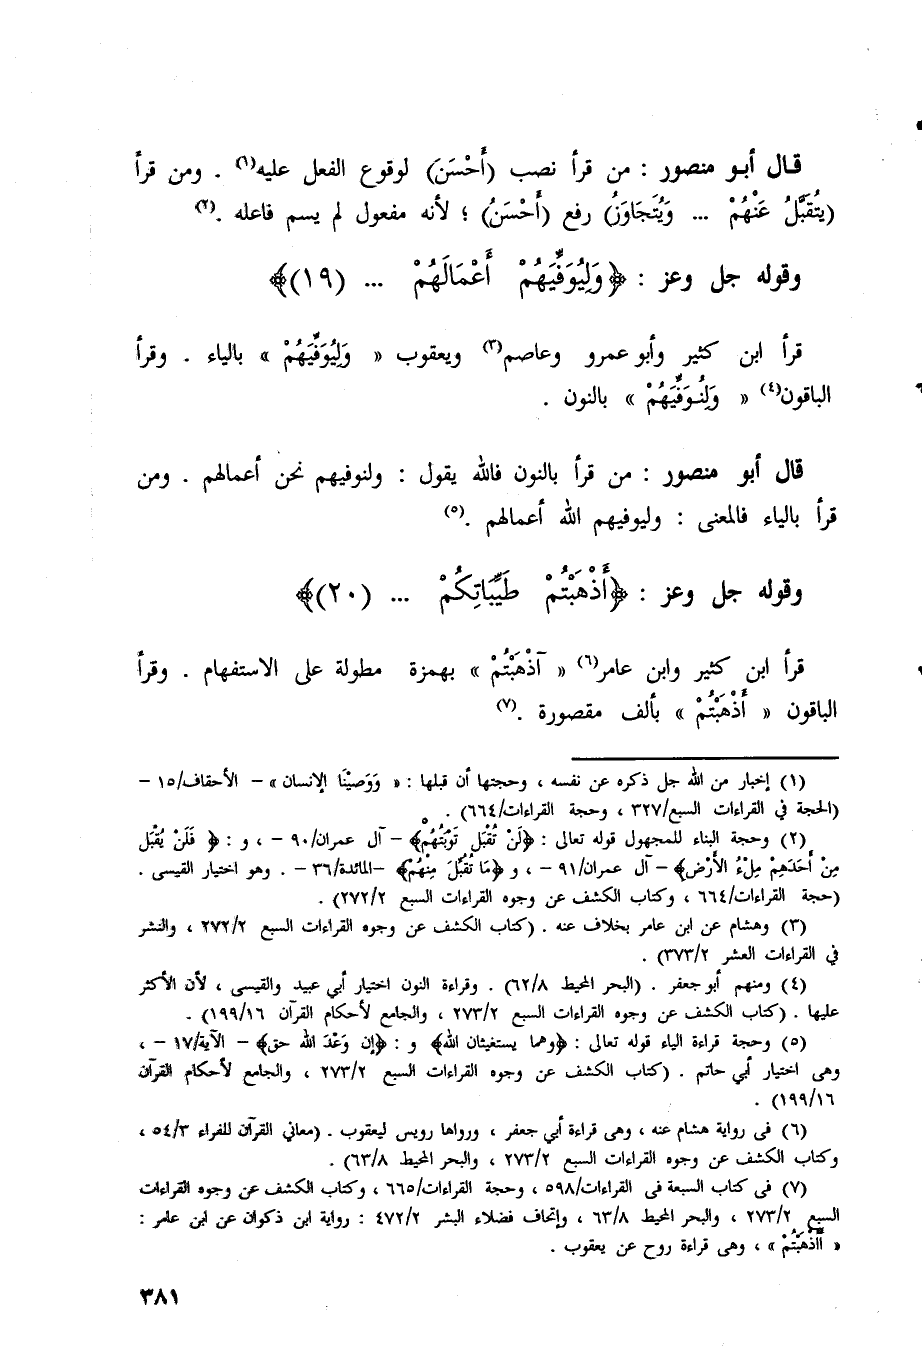 قال أبو منصور : من قرأ نصب (أَحْسَنَ) لوقوع الفعل عليه(١) . ومن قرأ
(يُتَقَبَّلُ عَنْهُمْ ... وَيُتَجَاوَزُ) رفع (أَحْسَنُ) ؛ لأنه مفعول لم يسم فاعله .(٢)
وقوله جل وعز : ﴿وَلِيُوَفِّيَهُمْ أَعْمَالَهُمْ ... (١٩)﴾
قرأ ابن كثير وأبو عمرو وعاصم(٣) ويعقوب « وَلِيُوَفِّيَهُمْ » بالياء . وقرأ
الباقون(٤) « وَلِنُوَفِّيَهُمْ » بالنون .
قال أبو منصور : من قرأ بالنون فالله يقول : ولنوفيهم نحن أعمالهم . ومن
قرأ بالياء فالمعنى : وليوفيهم الله أعمالهم .(٥)
وقوله جل وعز : ﴿أَذْهَبْتُمْ طَيِّبَاتِكُمْ ... (٢٠)﴾
قرأ ابن كثير وابن عامر(٦) « آذْهَبْتُمْ » بهمزة مطولة على الاستفهام . وقرأ
الباقون « أَذْهَبْتُمْ » بألف مقصورة .(٧)
(١) إخبار من الله جل ذكره عن نفسه ، وحجتها أن قبلها : « وَوَصيْنَا الإنسان » – الأحقاف/١٥ –
(الحجة في القراءات السبع/٣٢٧ ، وحجة القراءات/٦٦٤) .
(٢) وحجة البناء للمجهول قوله تعالى : ﴿لَنْ تُقْبَل تَوْبَتُهُم﴾ – آل عمران/٩٠ – ، و : ﴿ فَلَنْ يُقْبَل
مِنْ أَحَدِهِمْ مِلْءُ الأَرْض﴾ – آل عمران/٩١ – ، و ﴿مَا تُقُبِّلَ مِنْهُمْ﴾ –المائدة/٣٦ – . وهو اختيار القيسى .
(حجة القراءات/٦٦٤ ، وكتاب الكشف عن وجوه القراءات السبع ٢٧٢/٢) .
(٣) وهشام عن ابن عامر بخلاف عنه . (كتاب الكشف عن وجوه القراءات السبع ٢٧٢/٢ ، والنشر
في القراءات العشر ٣٧٣/٢) .
(٤) ومنهم أبو جعفر . (البحر المحيط ٦٢/٨) . وقراءة النون اختيار أبي عبيد والقيسى ، لأن الأكثر
عليها . (كتاب الكشف عن وجوه القراءات السبع ٢٧٣/٢ ، والجامع لأحكام القرآن ١٩٩/١٦) .
(٥) وحجة قراءة الياء قوله تعالى : ﴿وهما يستغيثان الله﴾ و : ﴿إن وَعْدَ الله حق﴾ – الآية/١٧ – ،
وهى اختيار أبي حاتم . (كتاب الكشف عن وجوه القراءات السبع ٢٧٣/٢ ، والجامع لأحكام القرآن
١٩٩/١٦) .
(٦) فى رواية هشام عنه ، وهى قراءة أبي جعفر ، ورواها رويس ليعقوب . (معاني القرآن للفراء ٥٤/٣ ،
وكتاب الكشف عن وجوه القراءات السبع ٢٧٣/٢ ، والبحر المحيط ٦٣/٨) .
(٧) فى كتاب السبعة فى القراءات/٥٩٨ ، وحجة القراءات/٦٦٥ ، وكتاب الكشف عن وجوه القراءات
السبع ٢٧٣/٢ ، والبحر المحيط ٦٣/٨ ، وإتحاف فضلاء البشر ٤٧٢/٢ : رواية ابن ذكوان عن ابن عامر :
« أَأَذْهَبْتُمْ » ، وهى قراءة روح عن يعقوب .
٣٨١